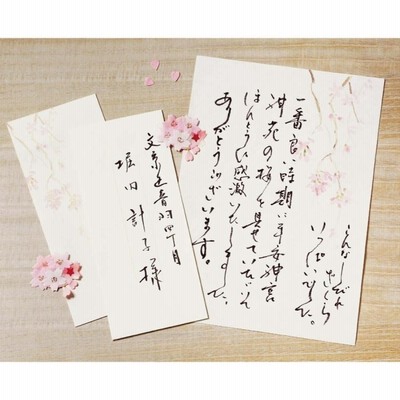 一番良い時期に平安神宮
神苑の桜を見せていただいて
ほんとうに感激いたしました。
ありがとうございます。
こんなしだれ
ざくら
いっぱいでした。
文京区音羽四丁目
堀田計子様